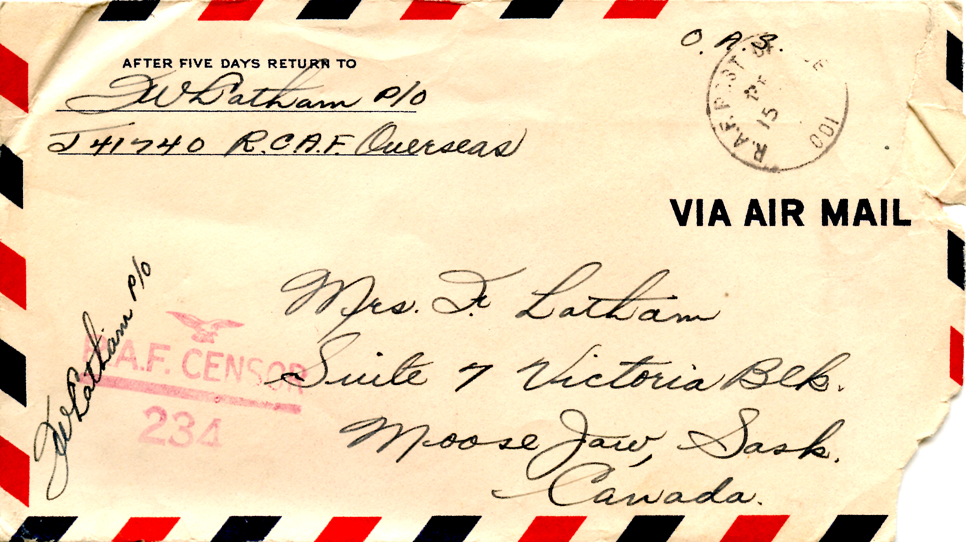 O.A.S.
AFTER FIVE DAYS RETURN TO
JW Latham P/O
J41740 R.C.A.F. Overseas
R.A.F. POST
15
001
VIA AIR MAIL
Mrs. J. Latham
Suite 7 Victoria Blk.
Moose Jaw, Sask.
Canada.
JW Latham P/O
A.F. CENSOR
234